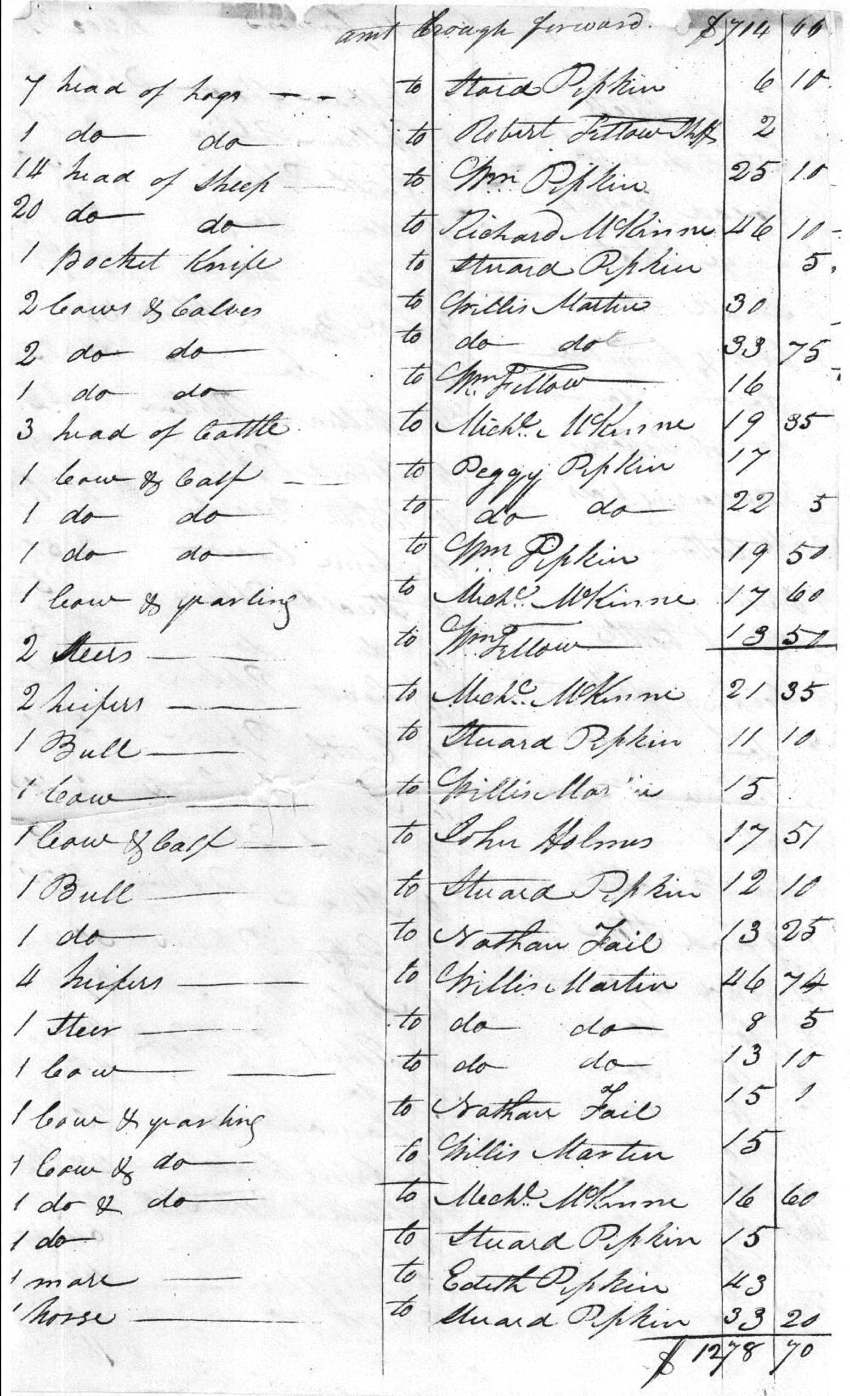 amt brough forward. $714 66
7 head of hogs to Stuard Pipkin 6 10
1 do do to Robert Fellow Shff 2
14 head of Sheep to Wm Pipkin 25 10
20 do do to Richard McKinne 46 10
1 Pocket Knife to Stuard Pipkin 5
2 Cows & Calves to Willis Martin 30
2 do do to do do 33 75
1 do do to Wm Fellow 16
3 head of Cattle to Michl. McKinne 19 35
1 Cow & Calf to Peggy Pipkin 17
1 do do to do do 22 5
1 do do to Wm Pipkin 19 50
1 Cow & yearling to Michl. McKinne 17 60
2 Steers to Wm Fellow 13 50
2 heifers to Michl. McKinne 21 35
1 Bull to Stuard Pipkin 11 10
1 Cow to Willis Martin 15
1 Cow & Calf to John Holmes 17 51
1 Bull to Stuard Pipkin 12 10
1 do to Nathan Fail 13 25
4 heifers to Willis Martin 46 74
1 Steer to do do 8 5
1 Cow to do do 13 10
1 Cow & yearling to Nathan Fail 15 1
1 Cow & do to Willis Martin 15
1 do & do to Michl. McKinne 16 60
1 do to Stuard Pipkin 15
1 mare to Edith Pipkin 43
1 horse to Stuard Pipkin 33 20
$ 1278 70